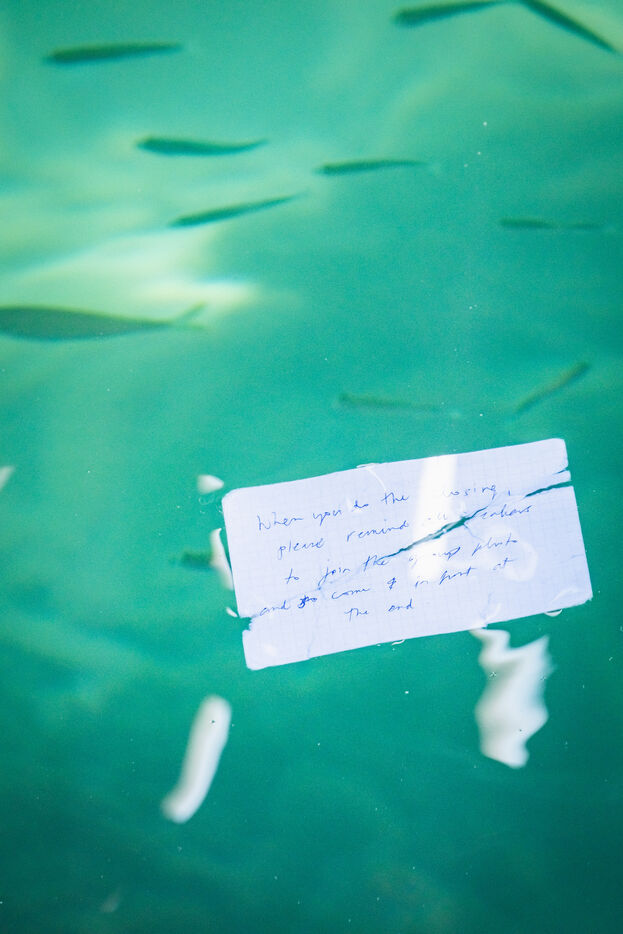 When you do the closing,
please remind all speakers
to join the group photo
and to come in front at
the end